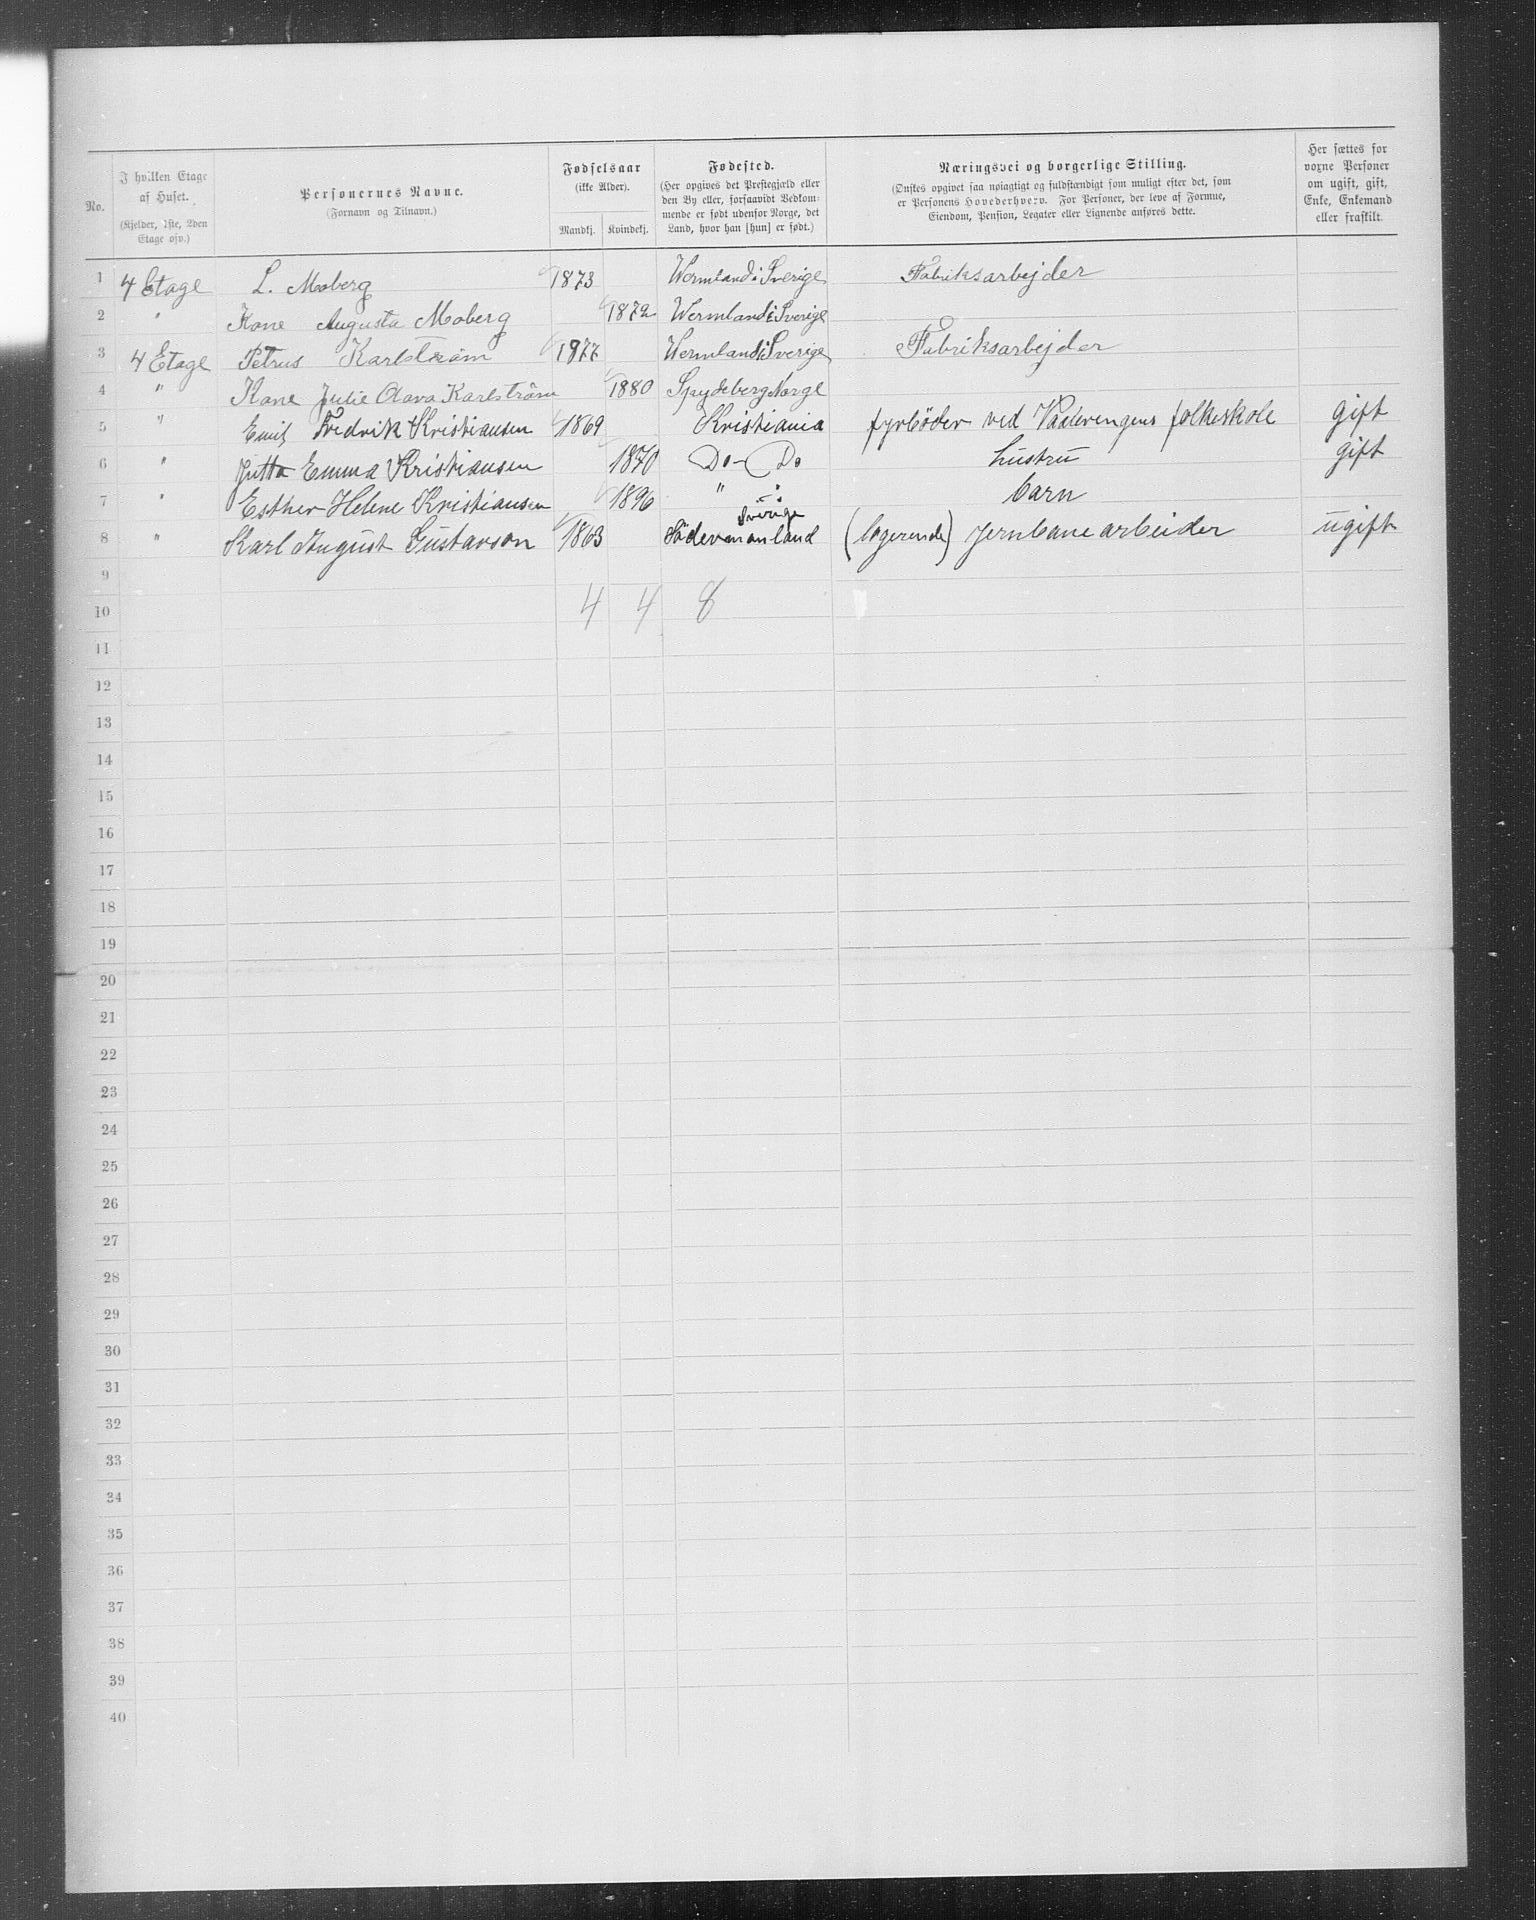 No.
I hvilken Etage af Huset. (Kjelder, 1ste, 2den Etage osv.)
Personernes Navne. (Fornavn og Tilnavn.)
Fødselsaar (ikke Alder). Mandkj. Kvindekj.
Fødested. (Her opgives det Prestegjæld eller den By eller, forsaavidt Vedkommende er født udenfor Norge, det Land, hvor han [hun] er født.)
Næringsvei og borgerlige Stilling. (Ønskes opgivet saa nøiagtigt og fuldstændigt som muligt efter det, som er Personens Hovederhverv. For Personer, der leve af Formue, Eiendom, Pension, Legater eller Lignende anføres dette.)
Her sættes for voxne Personer om ugift, gift, Enke, Enkemand eller fraskilt.
1 4 Etage L. Moberg 1873 Wermland i Sverige Fabriksarbejder
2 " Kone Augusta Moberg 1872 Wermland i Sverige
3 4 Etage Petrus Karlström 1877 Wermland i Sverige Fabriksarbejder
4 " Kone Julie Olava Karlström 1880 Spydeberg Norge
5 " Emil Fredrik Kristiansen 1869 Kristiania fyrböder ved Vaalerengens folkeskole gift
6 " Jutta Emma Kristiansen 1870 Do - Do hustru gift
7 " Esther Helene Kristiansen 1896 " " barn
8 " Karl August Gustavson 1863 Södermanland Sverige (logerende) Jernbanearbeider ugift
9
10 4 4 8
11
12
13
14
15
16
17
18
19
20
21
22
23
24
25
26
27
28
29
30
31
32
33
34
35
36
37
38
39
40